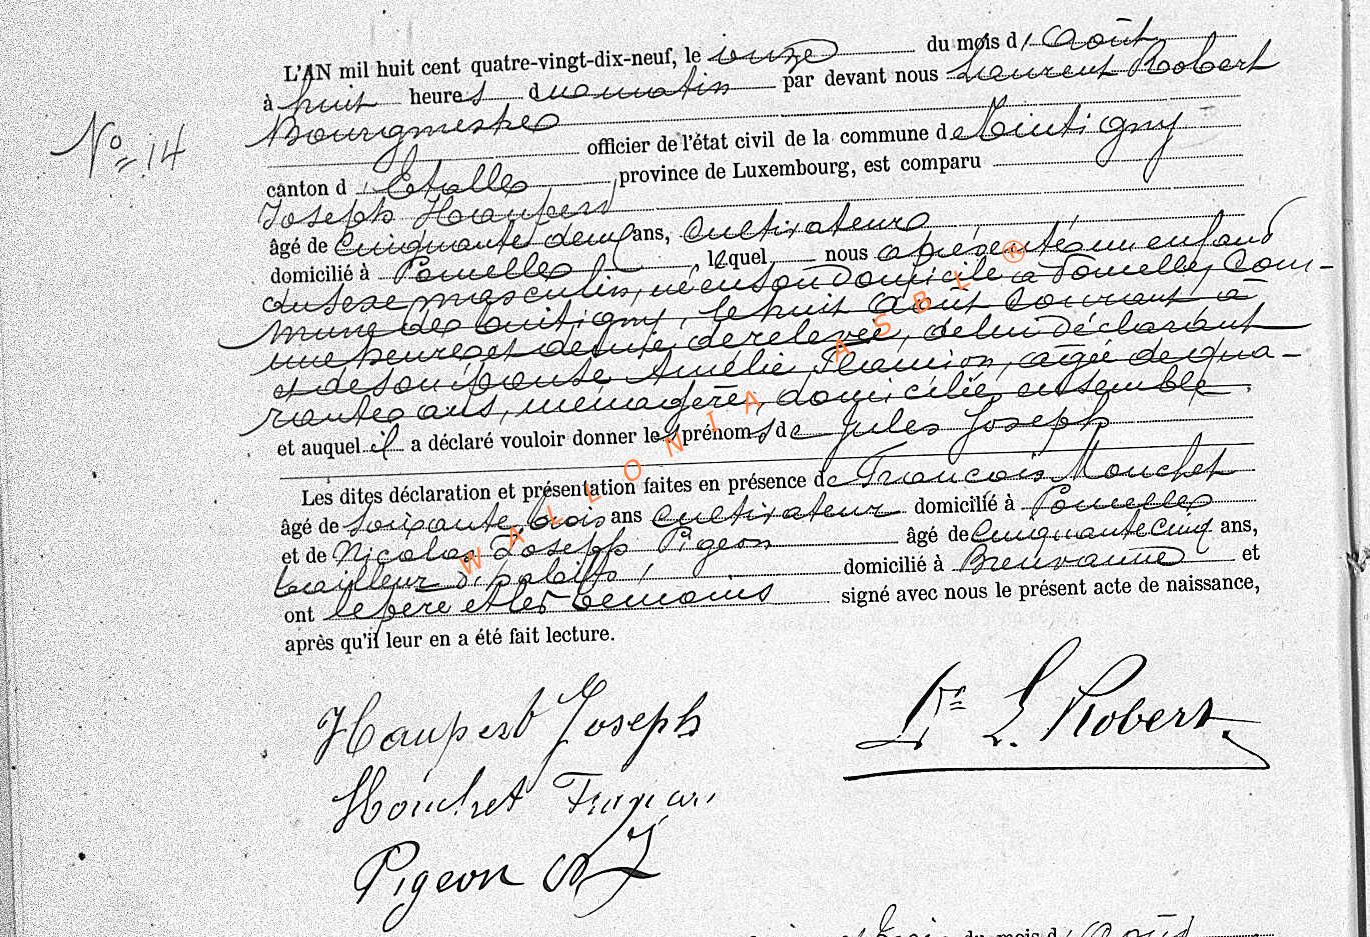 L'AN mil huit cent quatre-vingt-dix-neuf, le onze du mois d'Août
à huit heures du matin par devant nous Laurent Robert
Bourgmestre
No 14
officier de l'état civil de la commune de Tintigny
canton d'Etalle, province de Luxembourg, est comparu
Joseph Haupert
âgé de Cinquante deux ans, Cultivateur
domicilié à Poncelle, lequel nous a présenté un enfant
du sexe masculin, né en son domicile à Poncelle, Com-
mune de Tintigny, le huit Août Courant à
une heure et demie de relevée, de lui déclarant
et de son épouse Amélie, âgée de qua-
rante ans, ménagère, domiciliée ensemble
et auquel il a déclaré vouloir donner les prénoms de Jules Joseph
Les dites déclaration et présentation faites en présence de François Mouchet
âgé de soixante trois ans Cultivateur domicilié à Poncelle
et de Nicolas Joseph Pigeon âgé de Cinquante cinq ans,
tailleur d'habits, domicilié à Breuvanne et
ont le père et les témoins signé avec nous le présent acte de naissance,
après qu'il leur en a été fait lecture.
Haupert Joseph
Dr L. Robert.
Mouchet François
Pigeon N J
WALLONIA ASBL ®
du mois d'Août